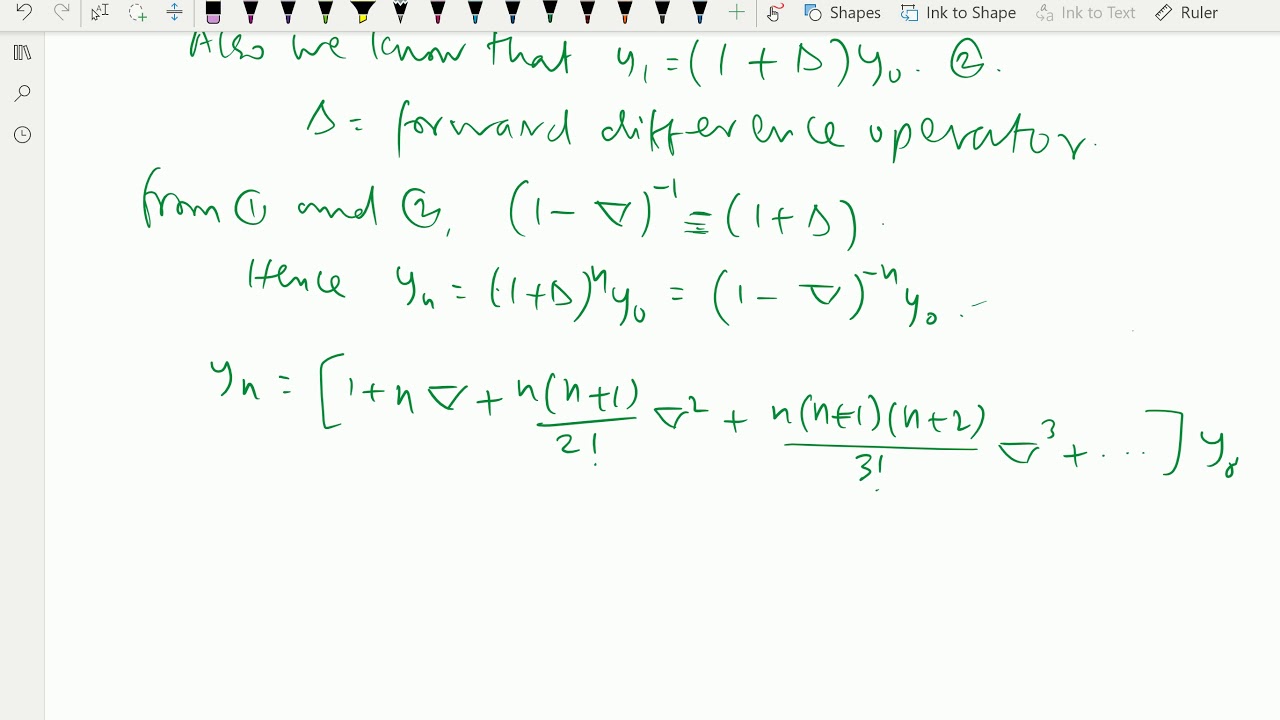 Shapes Ink to Shape Ink to Text Ruler
Also we know that y₁ = (1 + Δ) y₀. ②.
Δ = forward difference operator.
from ① and ②, (1 - ∇)⁻¹ ≡ (1 + Δ).
Hence yₙ = (1+Δ)ⁿ y₀ = (1 - ∇)⁻ⁿ y₀.
yₙ = [1 + n ∇ + n(n+1)/2! ∇² + n(n+1)(n+2)/3! ∇³ + ...] y₀